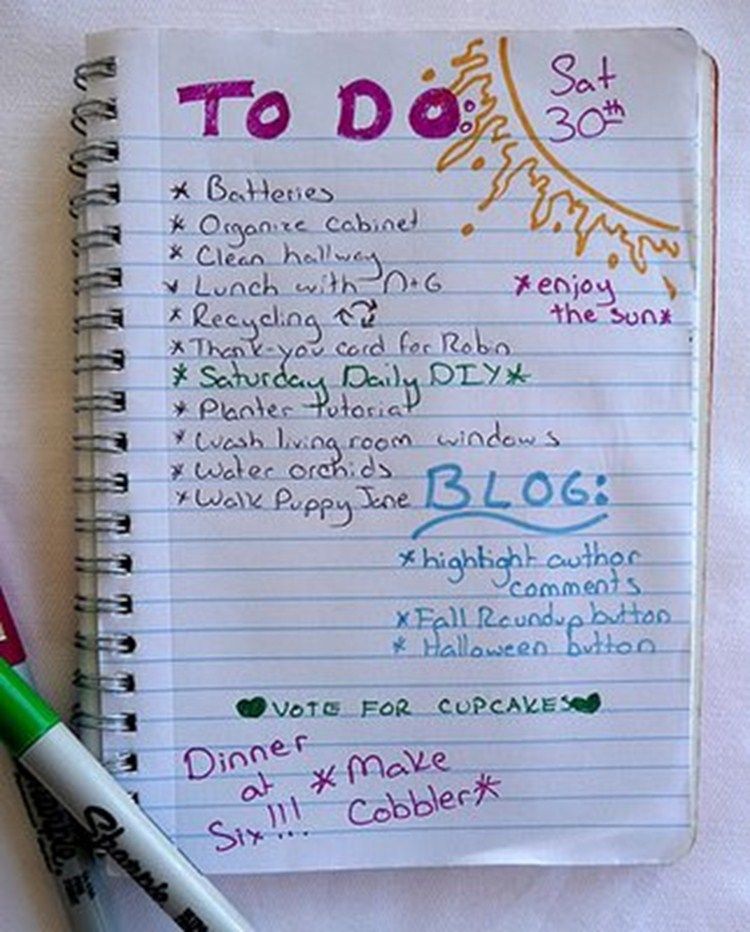 TO DO:
Sat
30th
* Batteries
* Organize cabinet
* Clean hallway
* Lunch with N+G
*enjoy
the sun*
* Recycling
* Thank-you card for Robin
* Saturday Daily DIY *
* Planter tutorial
* Wash living room windows
* Water orchids
* Walk Puppy Jane
BLOG:
* highlight author
comments
* Fall Roundup button
* Halloween button
VOTE FOR CUPCAKES
Dinner
at
Six!!!
* Make
Cobbler *
Sharpie